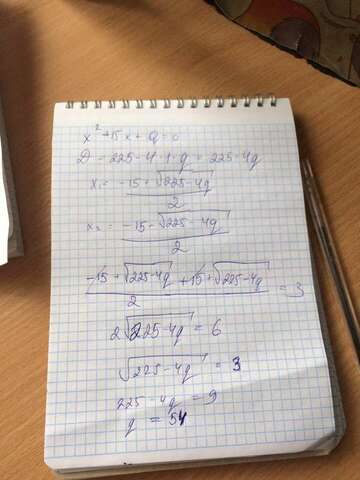 x² + 15x + q = 0
D = 225 - 4 · 1 · q = 225 - 4q
x₁ = (-15 + √(225 - 4q)) / 2
x₂ = (-15 - √(225 - 4q)) / 2
(-15 + √(225 - 4q) + 15 + √(225 - 4q)) / 2 = 3
2√(225 - 4q) = 6
√(225 - 4q) = 3
225 - 4q = 9
q = 54